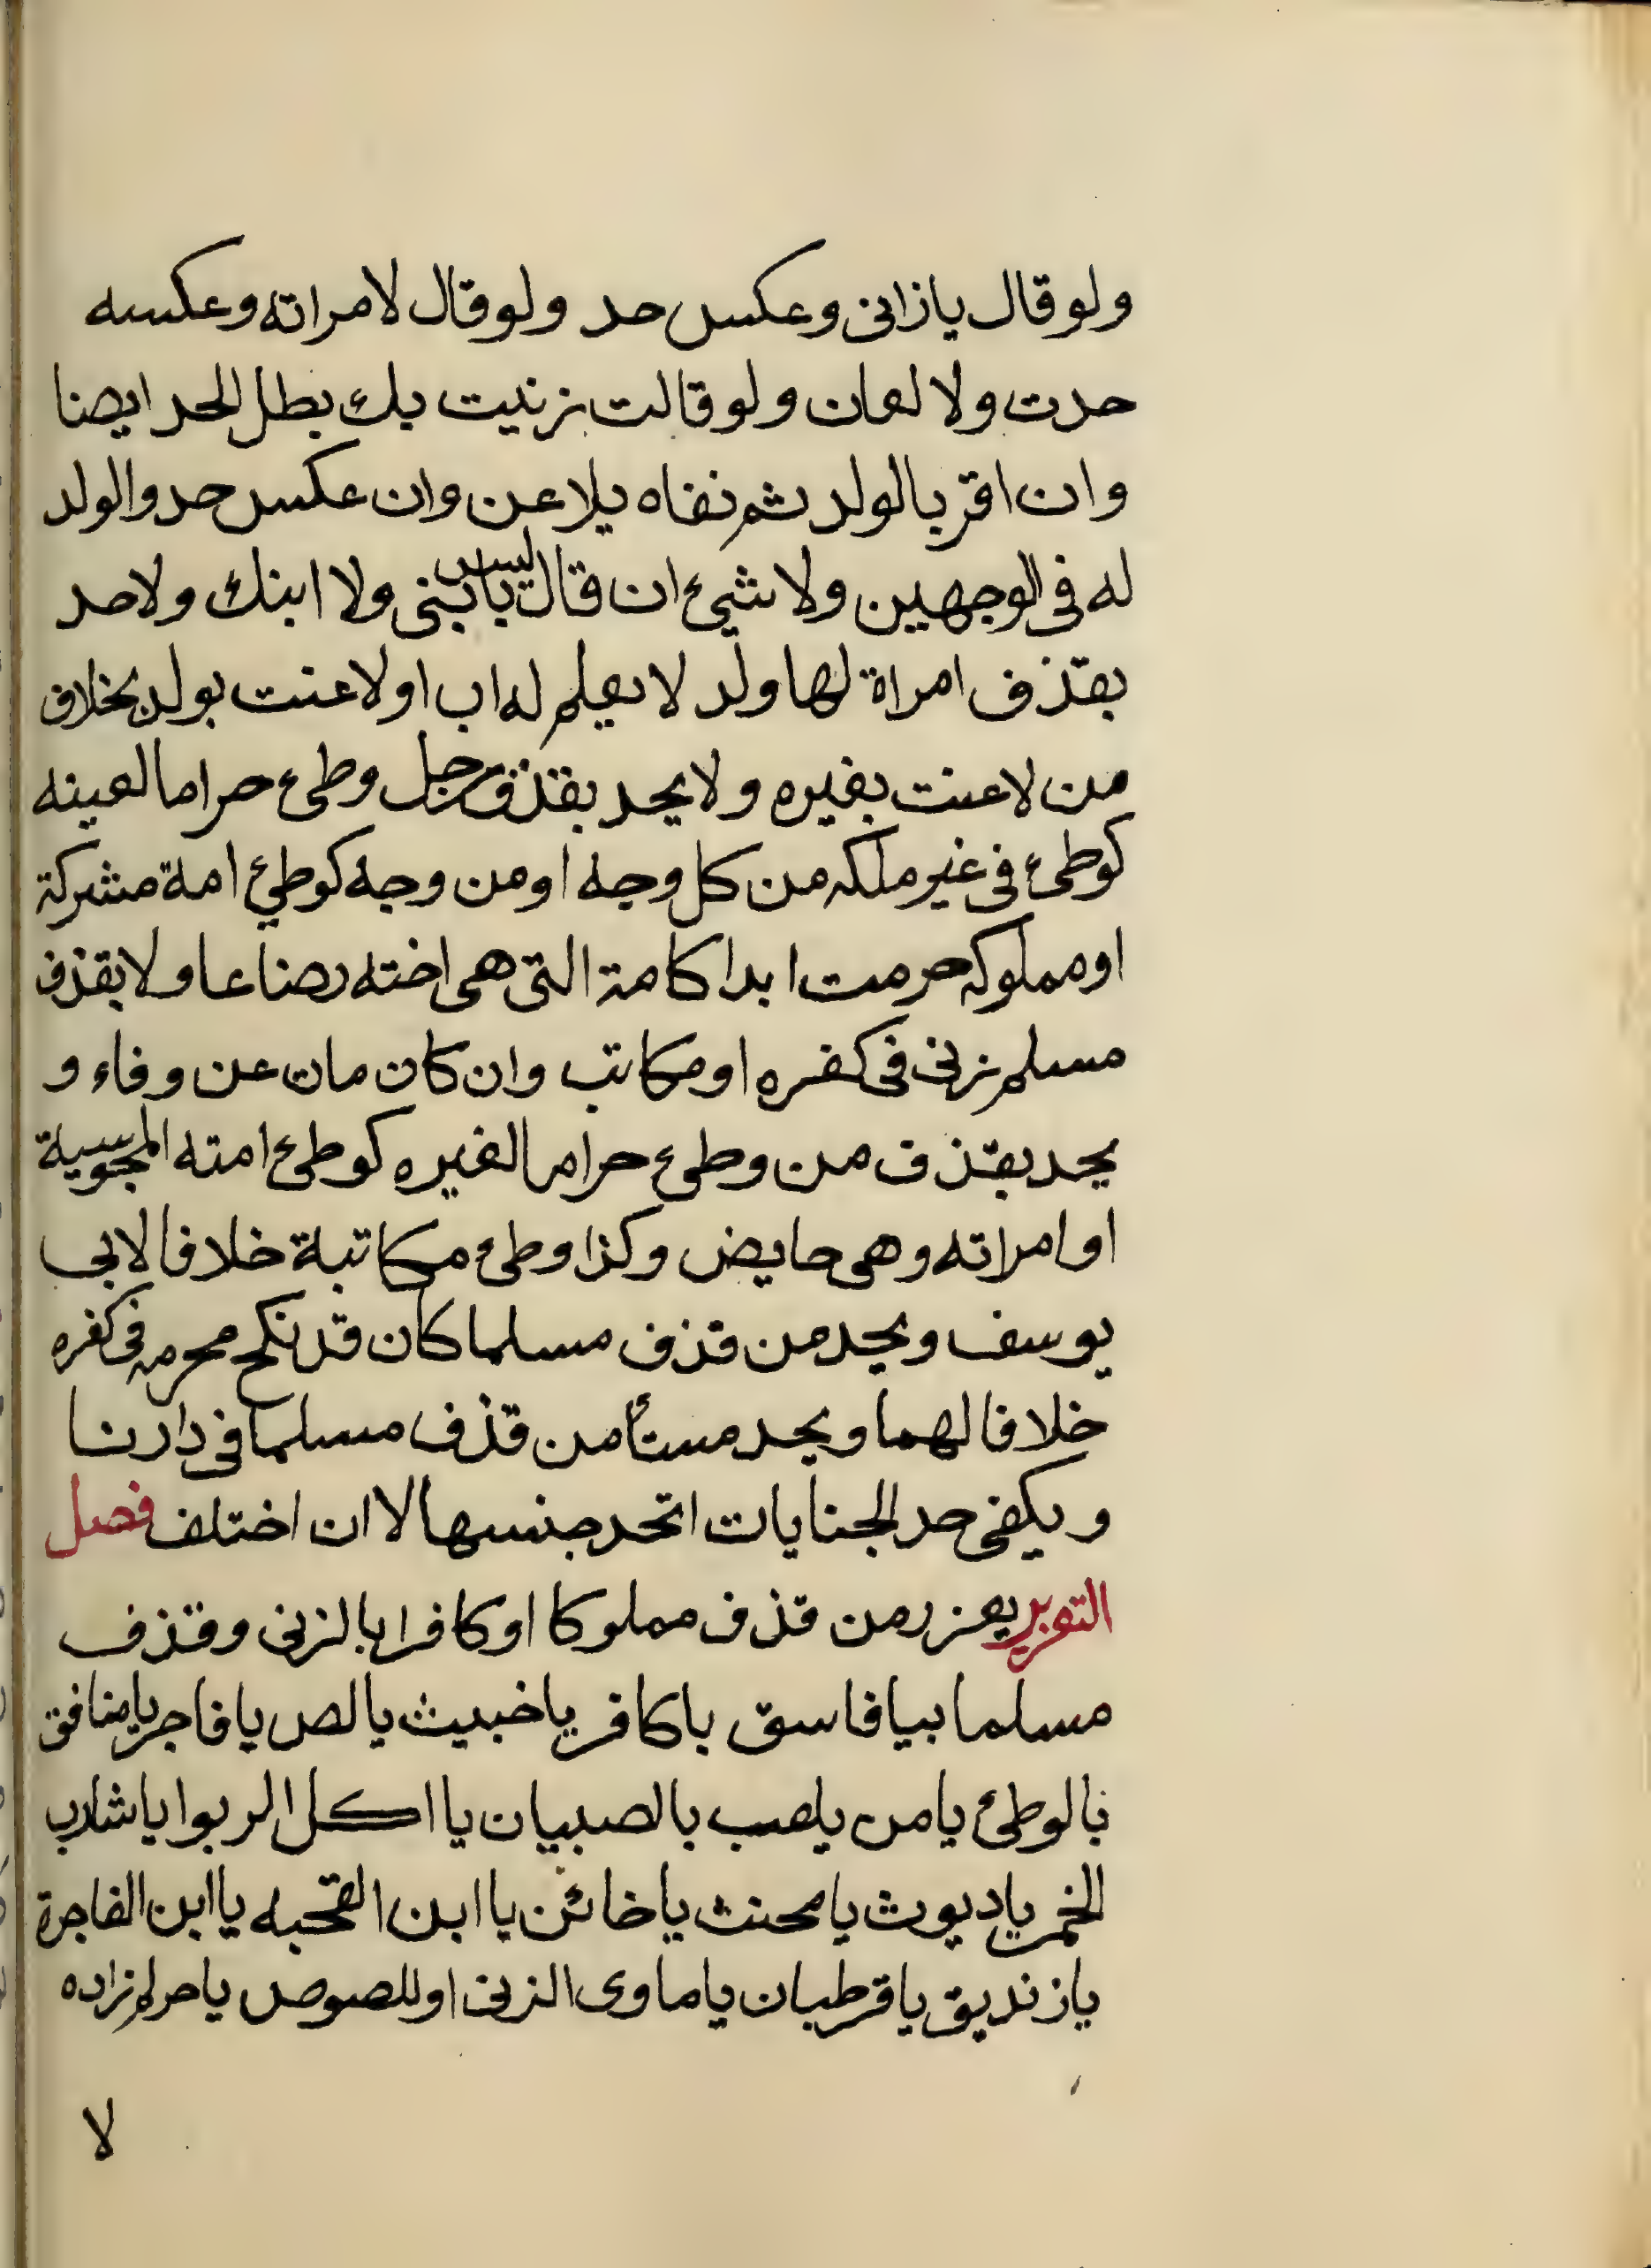 ولو قال يا زانى وعكس حد ولو قال لامراته وعكسه
حدت ولا لعان ولو قالت زنيت بك بطل الحد ايضا
وان اقر بالولد ثم نفاه يلاعن وان عكس حد والولد
له فى الوجهين ولا شئ ان قال ليس بابنى ولا ابنك ولا حد
بقذف امراة لها ولد لا يعلم له اب او لاعنت بولد بخلاف
من لاعنت بغيره ولا يحد بقذف رجل وطئ حراما لعينه
كوطئ فى غير ملكه من كل وجه او من وجه كوطئ امة مشركة
او مملوكه حرمت ابدا كامة التى هى اخته رضاعا ولا بقذف
مسلم زنى فى كفره او مكاتب وان كان مات عن وفاء و
يحد بقذف من وطئ حراما لغيره كوطئ امته المجوسية
او امراته وهى حايض وكذا وطئ مكاتبة خلافا لابى
يوسف ويحد من قذف مسلما كان قد نكح محرمه فى كفره
خلافا لهما ويحد مستأمن قذف مسلما فى دارنا
ويكفى حد لجنايات اتحد جنسها لا ان اختلف فصل
التعزير يعزر من قذف مملوكا او كافرا بالزنى وقذف
مسلما بيا فاسق باكافر يا خبيث يا لص يا فاجر يا منافق
بالوطئ يا من يلعب بالصبيان يا اكل الربوا يا شارب
الخمر يا ديوث يا مخنث يا خائن يا ابن القحبه يا ابن الفاجرة
يا زنديق يا قرطبان يا ماوى الزنى او للصوص يا حرام زاده
لا